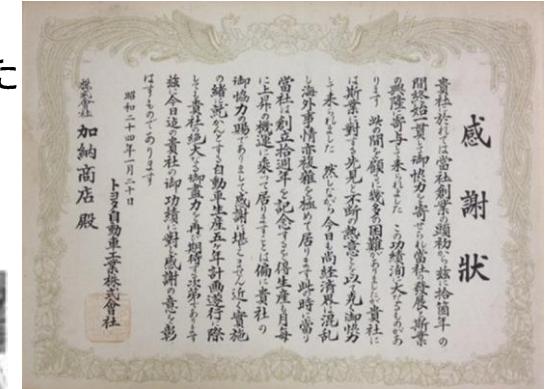 た
感謝狀
貴社に於れては當社創業の頭初から玆に拾箇年の
間終始一貫して御協力を寄せられ當社の發展と斯業
の興隆に寄与して来られました この功績洵に大なるものがあ
ります 此の間を顧るに幾多の困難がありましたが貴社に
は斯業に對する先見と不断の熱意とを以て克く御協力
して来られました 然しながら今日も尚経済界は混乱
し海外事情亦複雑を極めて居ります此の時に當り
當社は創立拾週年を記念するを得生産も月毎
に上昇の機運に乗って居りますことは偏に貴社の
御協力の賜でありまして感謝に堪えません近く實施
の緒に就かんとする自動車生産五ケ年計画遂行に際
しても貴社の絶大なる御盡力を再び期待する次第であります
玆に今日迄の貴社の御功績に對し感謝の意を彰
はすものであります
昭和二十四年一月二十日
トヨタ自動車工業株式會社
株式會社 加納商店 殿